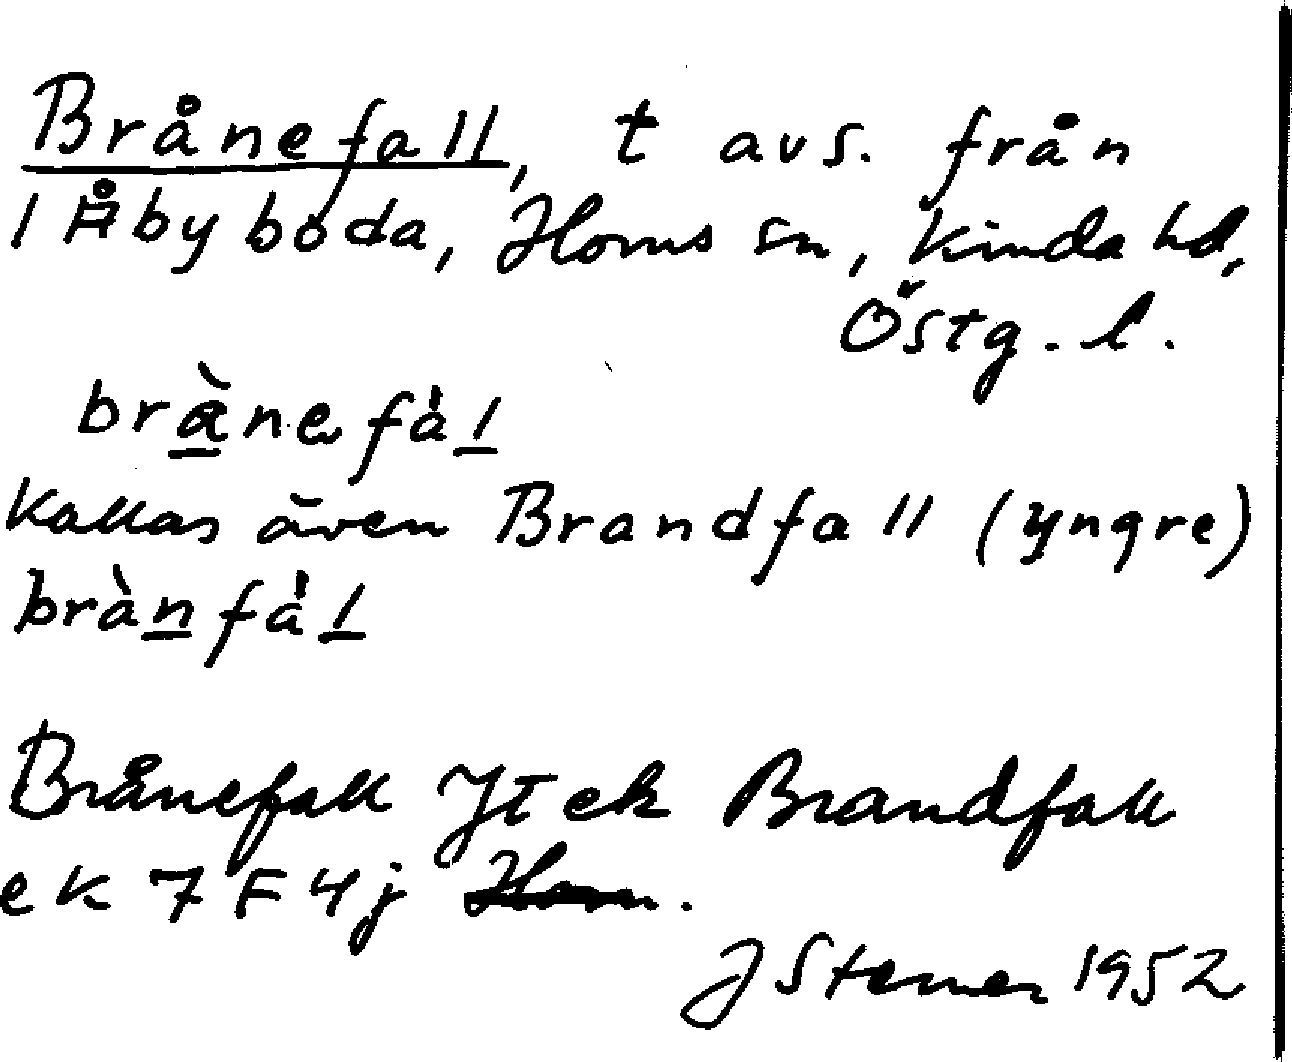 Brånefall, t avs. från
1 Åby boda, Horns sn, Kinda hd,
Östg. l.
brå̀nefá̍l
Kallas även Brandfall (yngre)
bràn fá̍l
Brånefall JT ek Brandfall
ek 7F4j Horn.
J Stener 1952